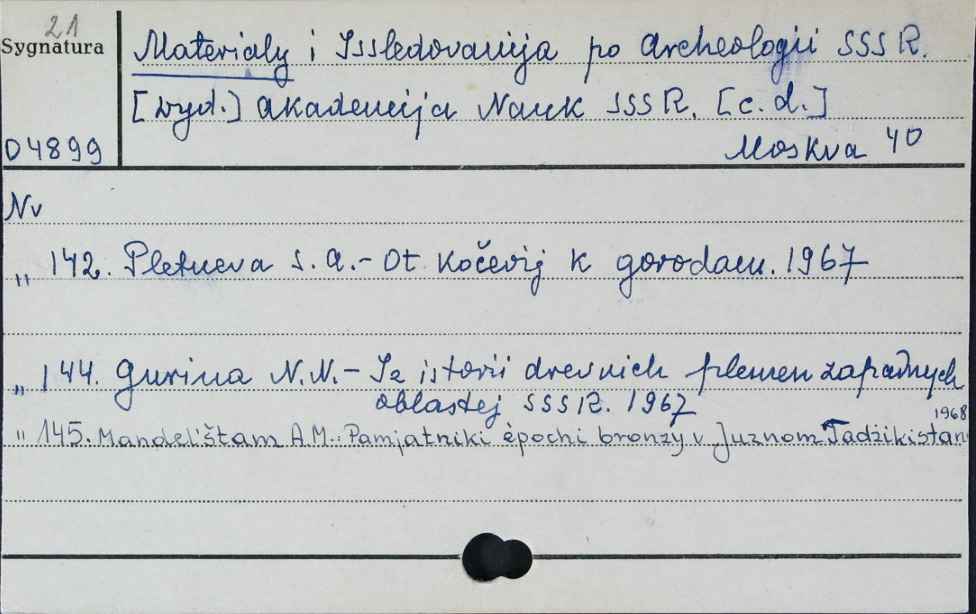 21
Sygnatura
Materialy i Issledovanija po Archeologii SSSR.
[wyd.] Akademija Nauk SSSR. [c.d.]
04899
Moskva 40
Nv
„ 142. Pletneva S.A.- Ot Kočevij k gorodam. 1967
„ 144. Gurina N.N.- Iz istorii drevnich plemen zapadnych
oblastej SSSR. 1967
„ 145. Mandel'štam A.M.: Pamjatniki èpochi bronzy v Južnom Tadžikistane
1968